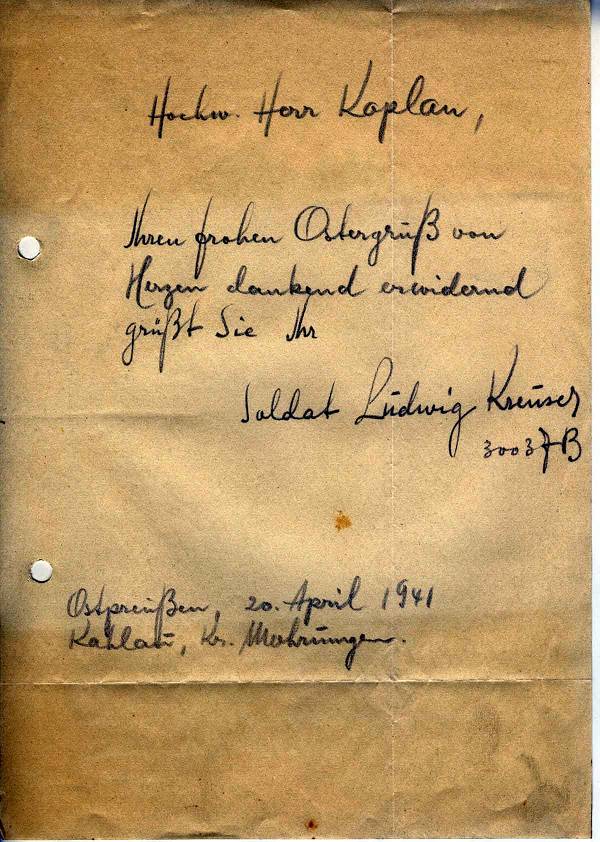 Hochw. Herr Kaplan,
Ihren frohen Ostergruß von
Herzen dankend erwidernd
grüßt Sie Ihr
Soldat Ludwig Kreuser
30037B
Ostpreußen, 20. April 1941
Kahlau, Kr. Mohrungen.